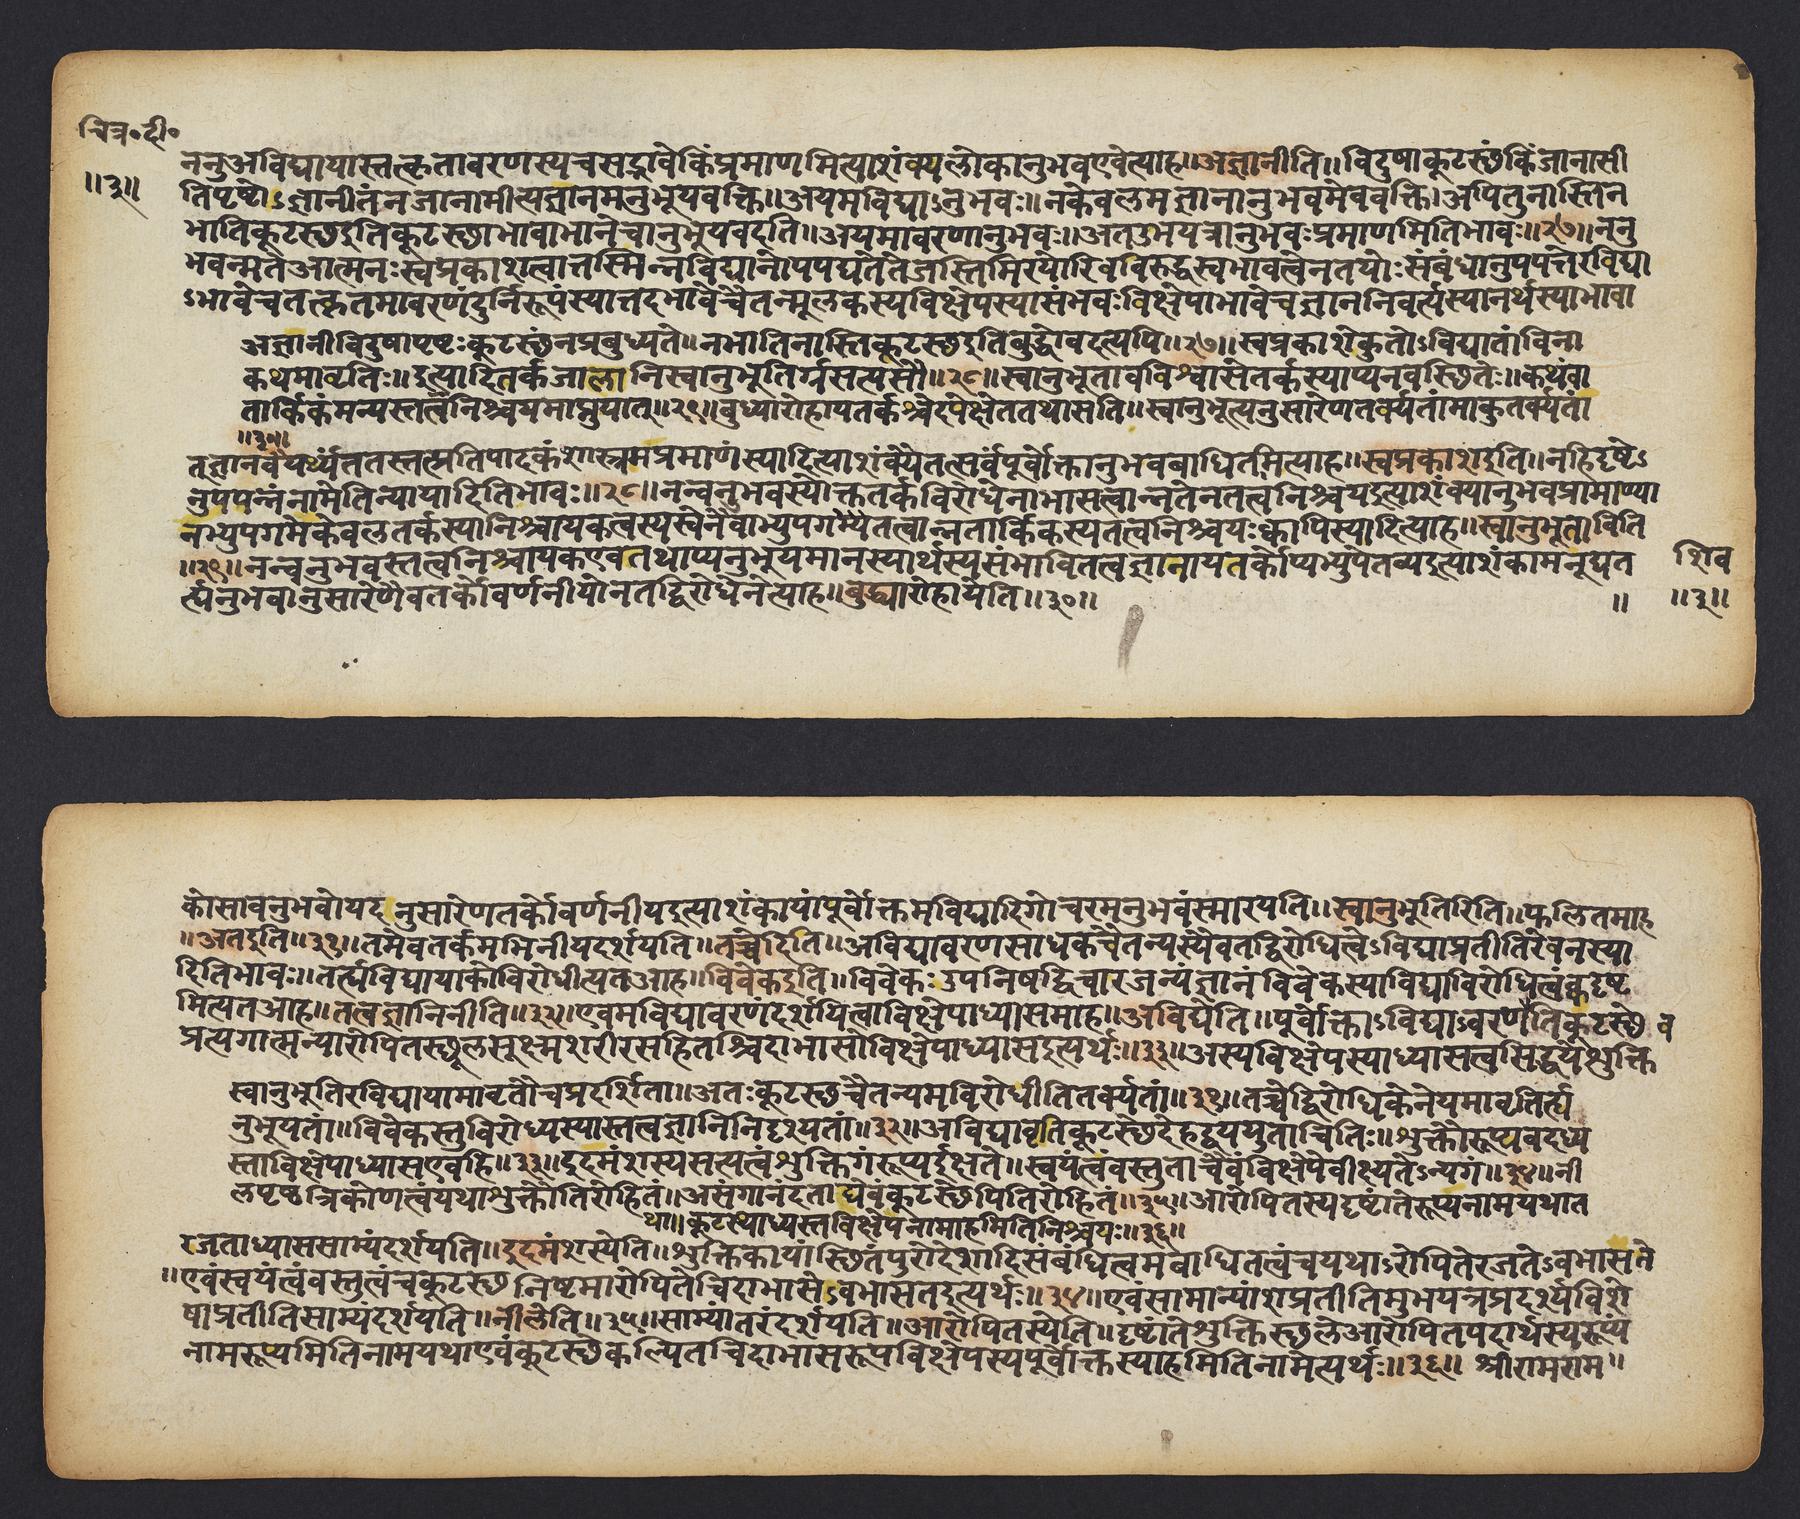 चित्र॰दी॰
॥३॥
ननुअविद्यायास्तत्कृतावरणस्यचसद्भावेकिंप्रमाणमित्याशंक्यलोकानुभवएवेत्याह॥अज्ञानीति॥विदुषाकूटस्थंकिंजानासी
तिपृष्टोऽज्ञानीतंनजानामीत्यज्ञानमनुभूयवक्ति॥अयमविद्याऽनुभवः॥नकेवलमज्ञानानुभवमेववक्ति।अपितुनास्तिन
भातिकूटस्थइतिकूटस्थाभावाभानेचानुभूयवदति॥अयमावरणानुभवः॥अतउभयत्रानुभवःप्रमाणमितिभावः॥२७॥ननु
भवन्मतेआत्मनःस्वप्रकाशत्वात्तस्मिन्नविद्यानोपपद्यतेतेजस्तिमिरयोरिवविरुद्धस्वभावत्वेनतयोःसंबंधानुपपत्तेरविद्या
ऽभावेचतत्कृतमावरणंदुर्निरूपंस्यात्तदभावेचैतन्मूलकस्यविक्षेपस्यासंभवःविक्षेपाभावेचज्ञाननिवर्त्यस्यानर्थस्याभावा
अज्ञानीविदुषापृष्टःकूटस्थंनप्रबुध्यते॥नभातिनास्तिकूटस्थइतिबुद्ध्वावदत्यपि॥२७॥स्वप्रकाशेकुतोऽविद्यातांविना
कथमावृतिः॥इत्यादितर्कजालानिस्वानुभूतिर्ग्रसत्यसौ॥२८॥स्वानुभूतावविश्वासेतर्कस्याप्यनवस्थितेः॥कथंवा
तार्किकंमन्यस्तत्वनिश्चयमाप्नुयात्॥२९॥बुध्यारोहायतर्कश्चेदपेक्षेततथासति॥स्वानुभूत्यनुसारेणतर्क्यतांमाकुतर्क्यतां
॥३०॥
तूज्ञानवैयर्थ्यंततस्तत्प्रतिपादकंशास्त्रमप्रमाणंस्यादित्याशंक्यैतत्सर्वंपूर्वोक्तानुभवबाधितमित्याह॥स्वप्रकाशइति॥नहिदृष्टेऽ
नुपपन्नंनामेतिन्यायादितिभावः॥२८॥नन्वनुभवस्योक्ततर्कविरोधेनाभासत्वान्नतेनतत्वनिश्चयइत्याशंक्यानुभवप्रामाण्या
नभ्युपगमेकेवलतर्कस्यानिश्चायकत्वस्यस्वेनैवाभ्युपगम्येतत्वान्नतार्किकस्यतत्वनिश्चयःक्वापिस्यादित्याह॥स्वानुभूताविति
॥२९॥नन्वनुभवस्तत्वनिश्चायकएवतथाप्यनुभूयमानस्यार्थस्यसंभावितत्वज्ञानायतर्कोप्यभ्युपेतव्यइत्याशंकामनूद्यत
र्ह्यनुभवानुसारेणैवतर्कोवर्णनीयोनतद्विरोधेनेत्याह॥बुद्ध्यारोहायेति॥३०॥ ॥
शिव
॥३॥
कोसावनुभवोयदनुसारेणतर्कोवर्णनीयइत्याशंकायांपूर्वोक्तमविद्यादिगोचरमनुभवंस्मारयति॥स्वानुभूतिरिति॥फलितमाह
॥अतइति॥३१॥तमेवतर्कमभिनीयदर्शयति॥तच्चेदिति॥अविद्यावरणसाधकचैतन्यस्यैवतद्विरोधित्वेऽविद्याप्रतीतिरेवनस्या
दितिभावः॥तर्ह्यविद्यायाकोविरोधीत्यतआह॥विवेकइति॥विवेकःउपनिषद्विचारजन्यंज्ञानंविवेकस्याविद्याविरोधित्वंक्वदृष्ट
मित्यतआह॥तत्वज्ञानिनीति॥३२॥एवमविद्यावरणंदर्शयित्वाविक्षेपाध्यासमाह॥अविद्येति॥पूर्वोक्ताऽविद्याऽवरणेतिकूटस्थे व
प्रत्यगात्मन्यारोपितस्थूलसूक्ष्मशरीरसहितश्चिदाभासोविक्षेपाध्यासइत्यर्थः॥३३॥अस्यविक्षेपस्याध्यासत्वसिद्धयेशुक्ति
स्वानुभूतिरविद्यायामावृतौचप्रदर्शिता॥अतःकूटस्थचैतन्यमविरोधीतितर्क्यतां॥३१॥तच्चेद्विरोधिकेनेयमावृतिर्ह्य
नुभूयतां॥विवेकस्तुविरोध्यस्यास्तत्वज्ञानिनिदृश्यतां॥३२॥अविद्यावृतिकूटस्थेदेहद्वययुताचितिः॥शुक्तौरूप्यवदध्य
स्ताविक्षेपाध्यासएवहि॥३३॥इदमंशस्यसत्यत्वंशुक्तिगंरूप्यईक्षते॥स्वयंत्वंवस्तुताचैवंविक्षेपेवीक्ष्यतेऽन्यगं॥३४॥नी
लपृष्ठत्रिकोणत्वंयथाशुक्तौतिरोहितं॥असंगानंदताद्येवंकूटस्थेपितिरोहितं॥३५॥आरोपितस्यदृष्टांतेरूप्यनामयथात
था॥कूटस्थाध्यस्तविक्षेपनामाहमितिनिश्चयः॥३६॥
रजताध्याससाम्यंदर्शयति॥इदमंशस्येति॥शुक्तिकायांस्थितंपुरोदेशादिसंबंधित्वमबाधितत्वंचयथाऽरोपितेरजतेऽवभासते
॥एवंस्वयंत्वंवस्तुत्वंचकूटस्थनिष्टमारोपितेचिदाभासेऽवभासतइत्यर्थः॥३४॥एवंसामान्यांशप्रतीतिमुभयत्रप्रदर्श्यविशे
षाप्रतीतिसाम्यंदर्शयति॥नीलेति॥३५॥साम्यांतरंदर्शयति॥आरोपितस्येति॥दृष्टांतेशुक्तिस्थलेआरोपितपदार्थस्यरूप्य
नामरूप्यमितिनामयथाएवंकूटस्थेकल्पितचिदाभासरूपविक्षेपस्यपूर्वोक्तस्याहमितिनामेत्यर्थः॥३६॥ श्रीरामराम॥